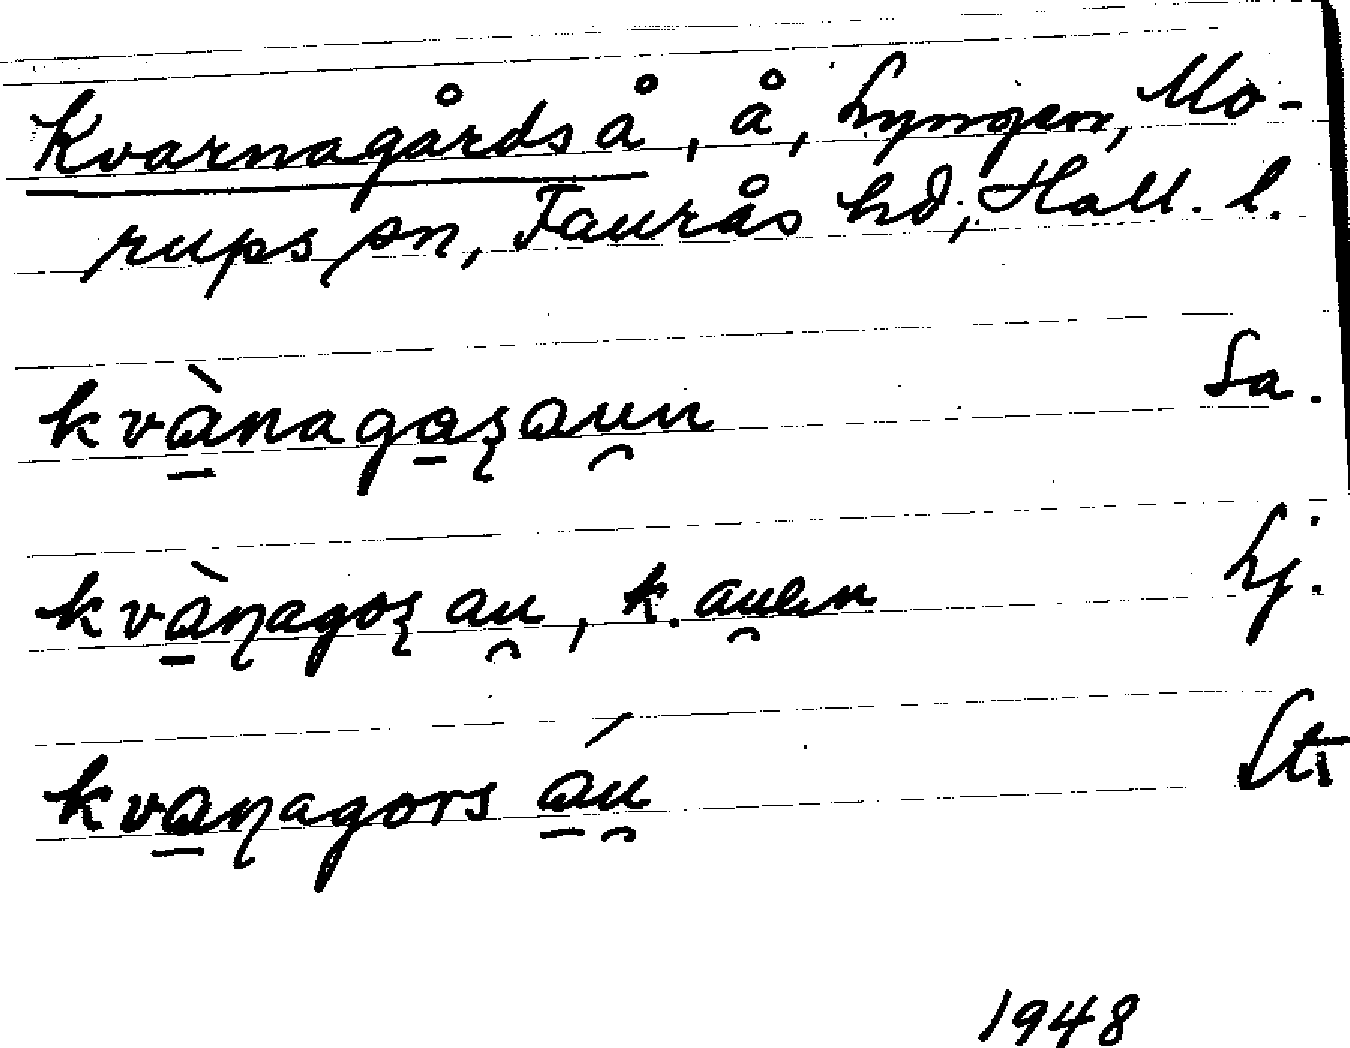 Kvarnagårdså, å, Lyngen, Mo-
rups sn, Faurås hd, Hall. l.
kvànagos̨au̯n Sa.
kvàṇagoş au̯, k. au̯en Lj.
kvaṇagors áu̯
1948